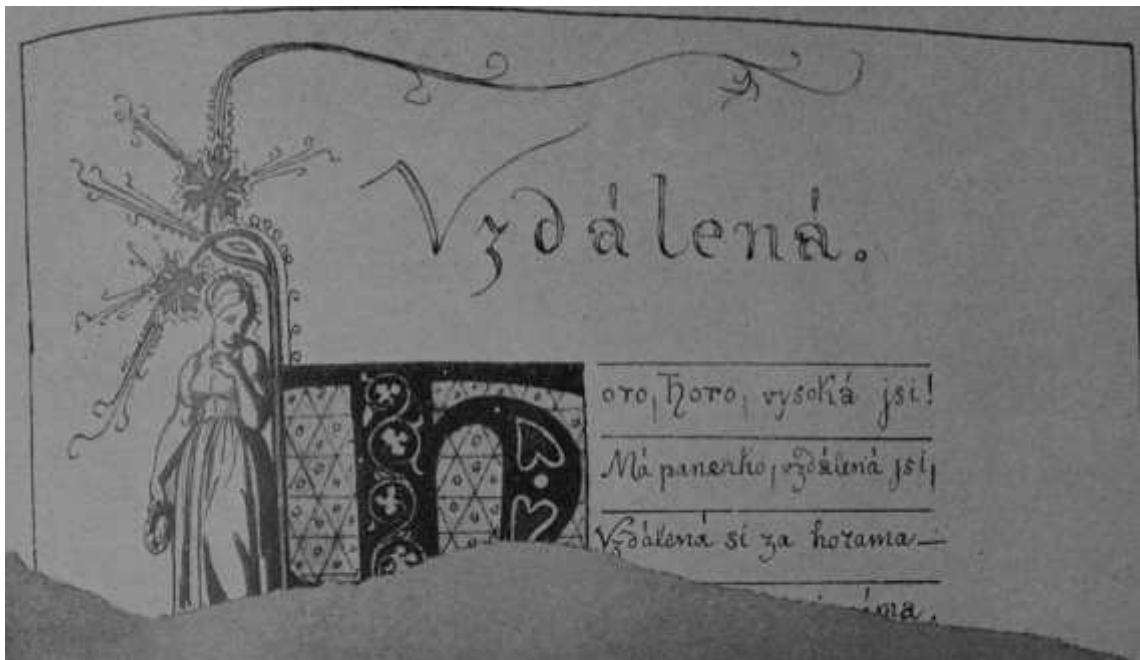 Vzdálená.
Horo, Horo, vysoká jsi!
Má panenko, vzdálená jsi,
Vzdálená si za horama —